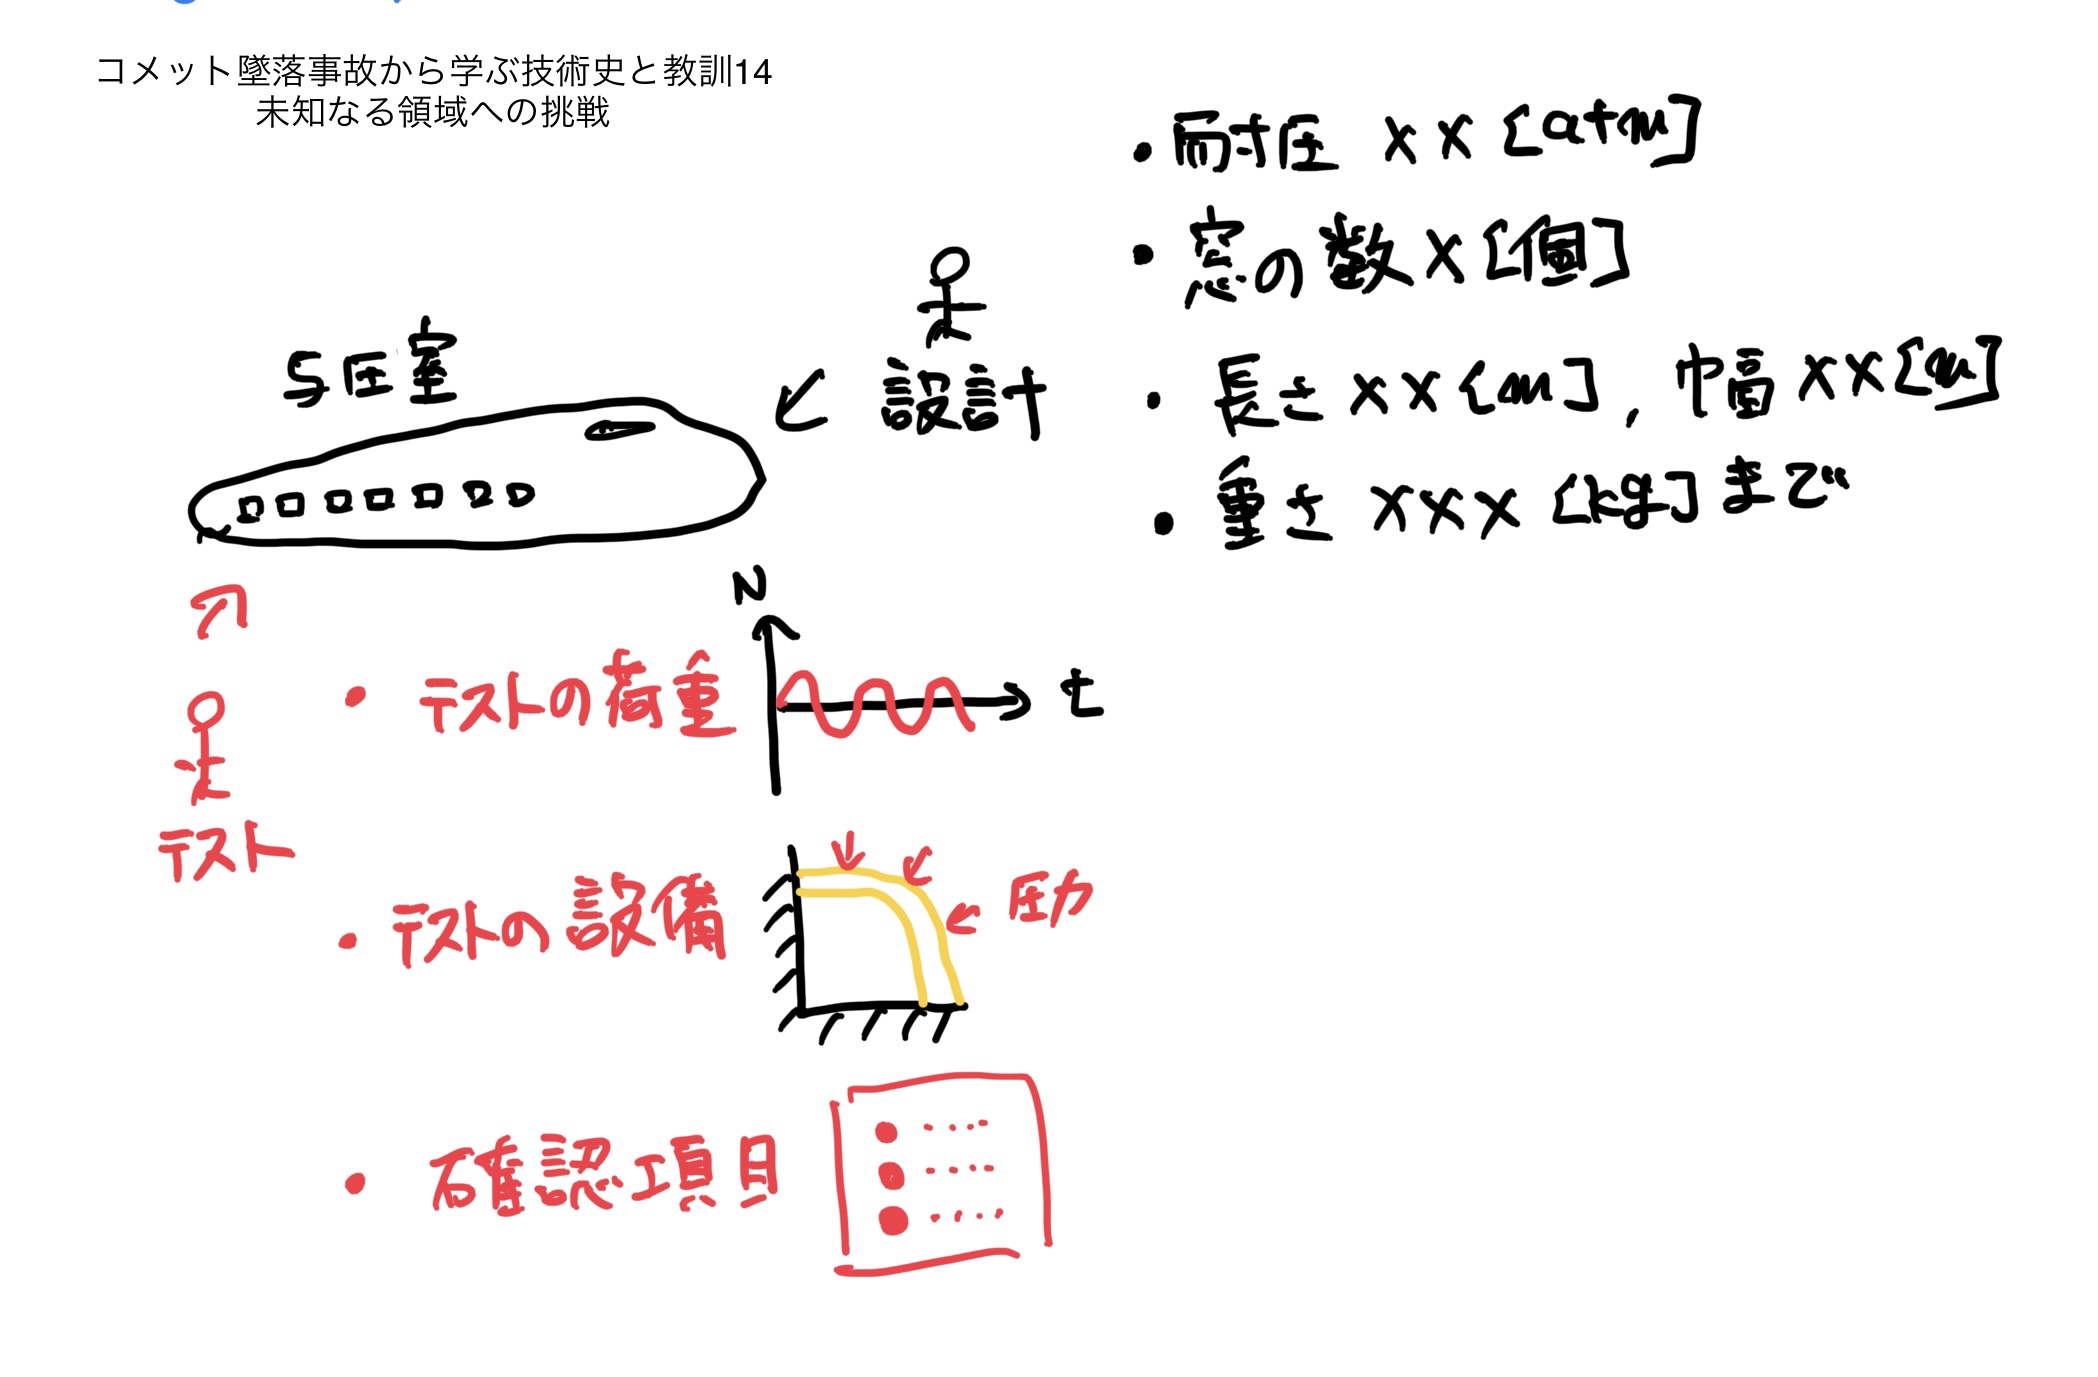 コメット墜落事故から学ぶ技術史と教訓14
未知なる領域への挑戦
・耐圧 ××[atm]
・窓の数×[個]
・長さ××[m], 巾畐××[m]
・重さ×××[kg]まで
与圧室
設計
N
t
・テストの荷重
テスト
・テストの設備
圧力
・確認項目